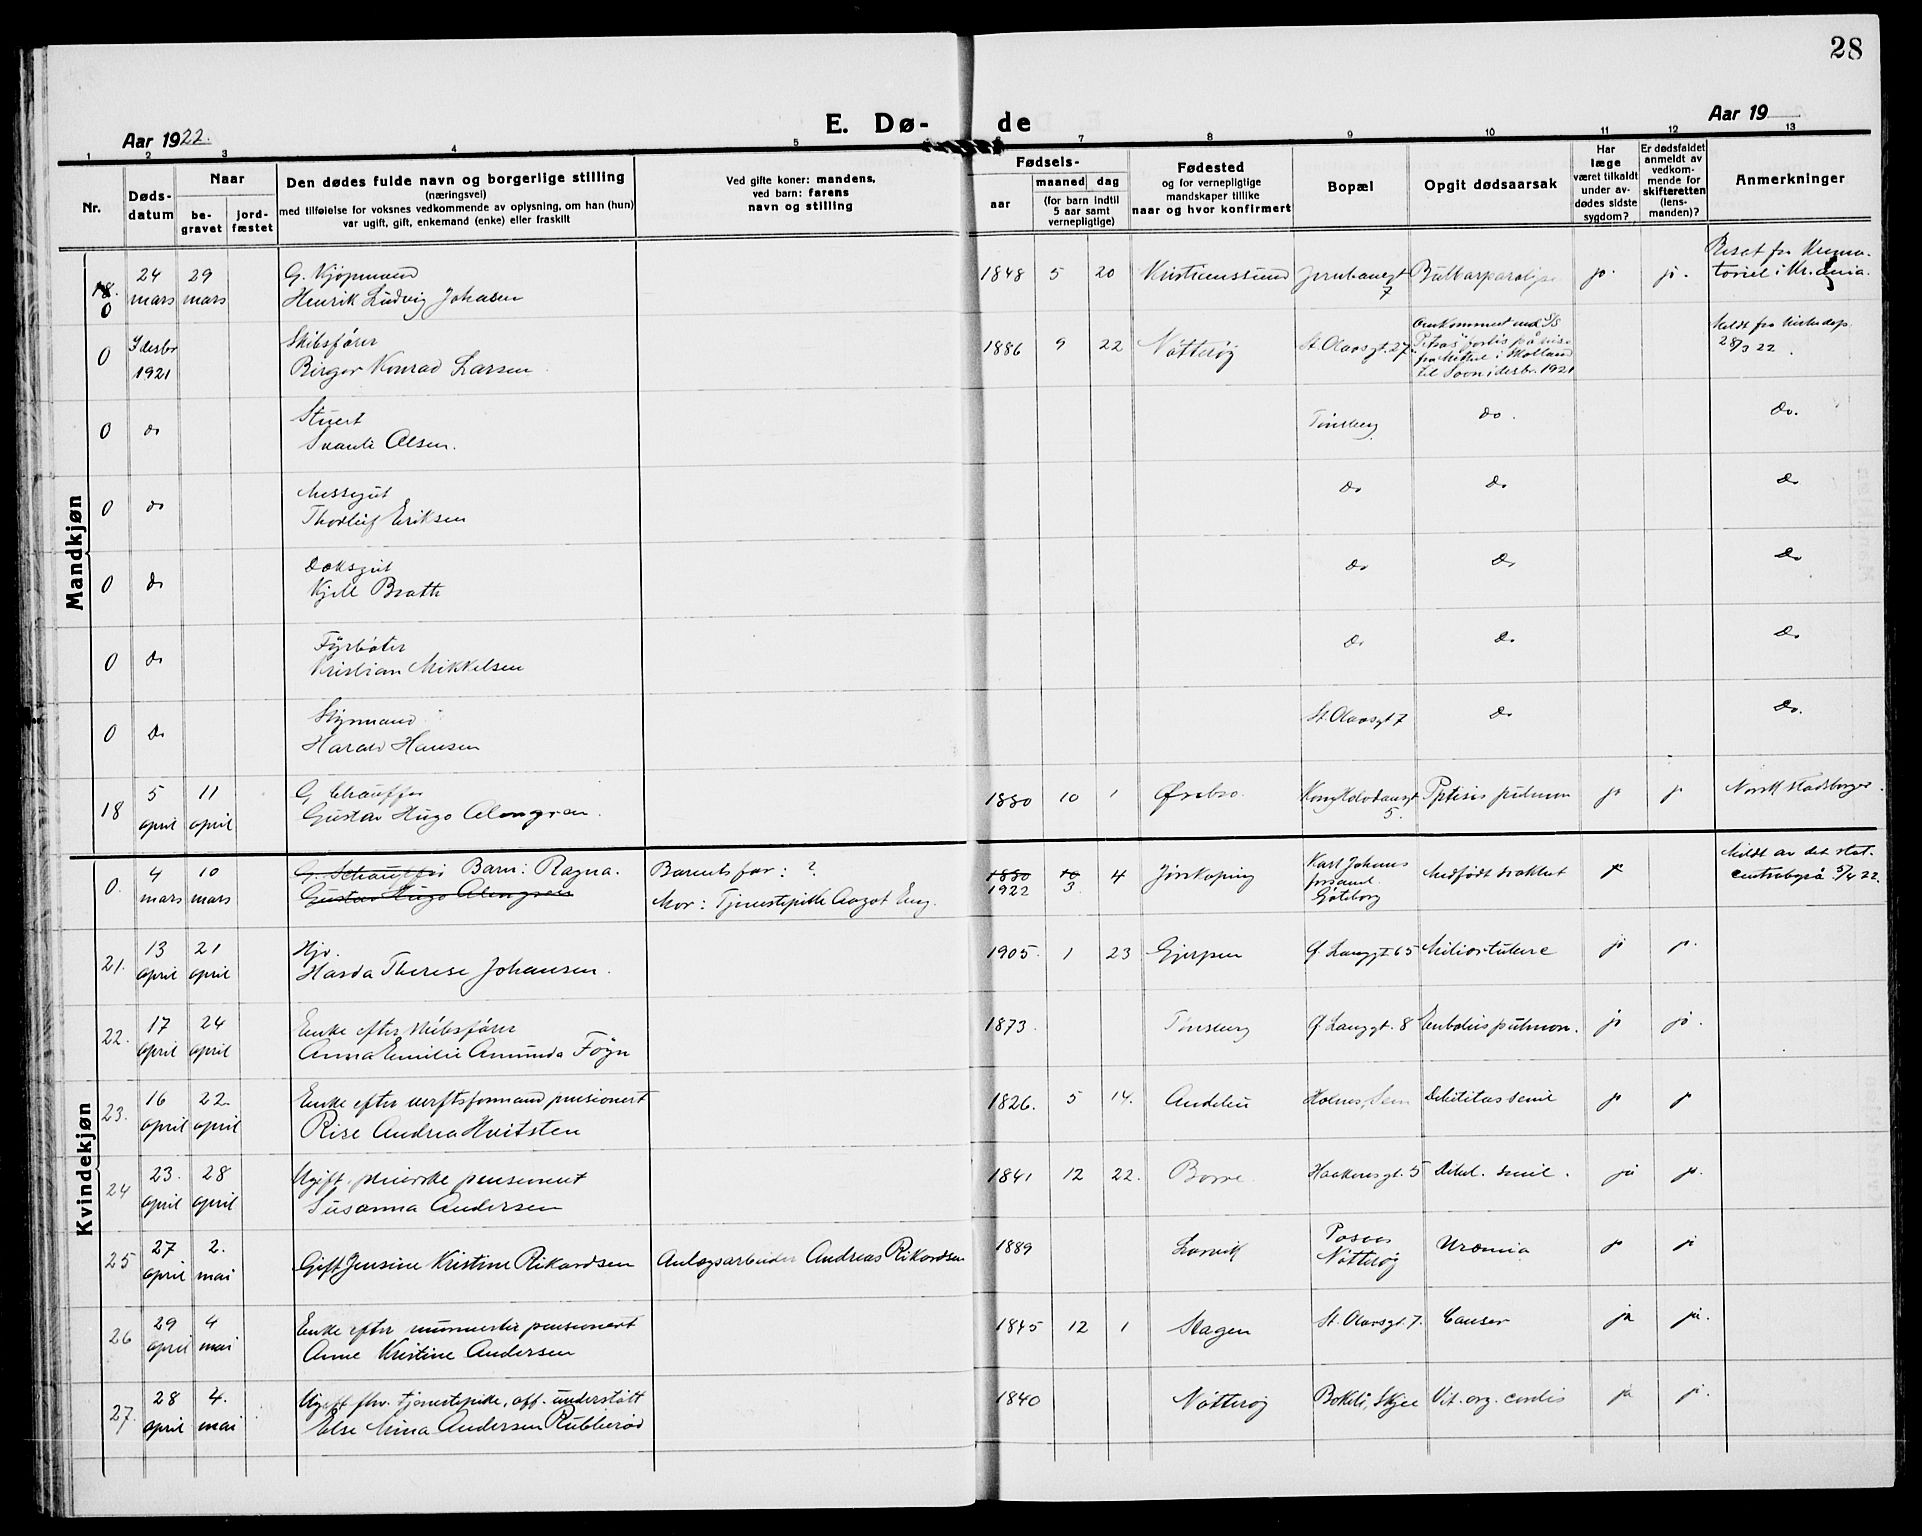 28
E. Dø- de
Aar 1922.
Aar 19
1 2 3 4 5 7 8 9 10 11 12 13
Nr.
Døds-
datum
Naar
be-
gravet
jord-
fæstet
Den dødes fulde navn og borgerlige stilling
(næringsvei)
med tilføielse for voksnes vedkommende av oplysning, om han (hun)
var ugift, gift, enkemand (enke) eller fraskilt
Ved gifte koner: mandens,
ved barn: farens
navn og stilling
Fødsels-
aar
maaned dag
(for barn indtil
5 aar samt
vernepligtige)
Fødested
og for vernepligtige
mandskaper tillike
naar og hvor konfirmert
Bopæl
Opgit dødsaarsak
Har
læge
været tilkaldt
under av-
dødes sidste
sygdom?
Er dødsfaldet
anmeldt av
vedkom-
mende for
skifteretten
(lens-
manden)?
Anmerkninger
Mandkjøn
18. 24 29 G. Kjøpmand 1848 5 20 Kristianssund Jernbanegt Bulbærparalyse ja. ja.
0 mars mars Henrik Ludvig Johasen 7
0 desbr Skibsfører 1886 9 22 Nøtterøy St. Olavsgt. 27 Omkommet med S/S
1921 Birger Konrad Larsen forlis på reise
til i desbr. 1921
28/3 22.
0 do Stuert Tønsberg do. do.
Olsen.
0 do Messegut do do do
Thorleif Eriksen
0 do Dæksgut do do do
Kjell Bratti
0 do Fyrbøter do do do
Kristian Mikkelsen
0 do Styrmand St. Olavsgt 7 do do.
Harald Hansen
18 5 11 G. Chauffør 1880 10 1 Ørebro Kong Halvdansgt Ptisis pulmon ja ja Norsk statsborger.
april april Gustav Hugo Almgren. 5.
Kvindekjøn
0. 4 10 G. Schauffør Barn: Ragna. Barnetsfar: ? 1880 10 4 Jønkøping Karl Johans Medfødt svakhet ja Meldt av det stat.
mars mars Gustav Hugo Almgren Mor: Tjenestepike Aagot Eng. 1922 3 forsaml. centralbyrå 5/4 22.
Gøteborg
21. 13 21 Hjv. 1905. 1 23 Gjerpen Ø. Langgt 65 ja ja.
april april Hasda Therese Johansen.
22. 17 24 Enke efter skibsfører 1873. Tønsberg Ø. Langgt. 8 Embolus pulmon. ja ja.
april april Anna Emilie Amunda Føyn
23. 16 22. Enke efter verftsformand pensionert 1826. 5 14. Holmes, Sem Debilitas senil ja ja
april april Rise Andrea Hvitsten
24 23. 28 Ugift, pensionert 1841 12 22. Borre. Haakonsgt. 5 Debil. senil. ja ja.
april april Susanna Andersen
25 27 2. Gift Jensine Kristine Rikardsen Anlægsarbeider Andreas Rikardsen 1889 Larvik Nøtterøy Uræmia ja ja
april mai
26 29 4 Enke efter murmester pensionert 1845 12 1 Slagen St. Olavsgt. 7. Canser ja ja.
april mai Anne Kristine Andersen
27. 28 4. Ugift fhv. tjenestepike, off. understøtt 1840 Nøtterøy Bøkeli, Skjee Vit. org. cordis ja ja.
april mai Else Mina Andersen Rubberød